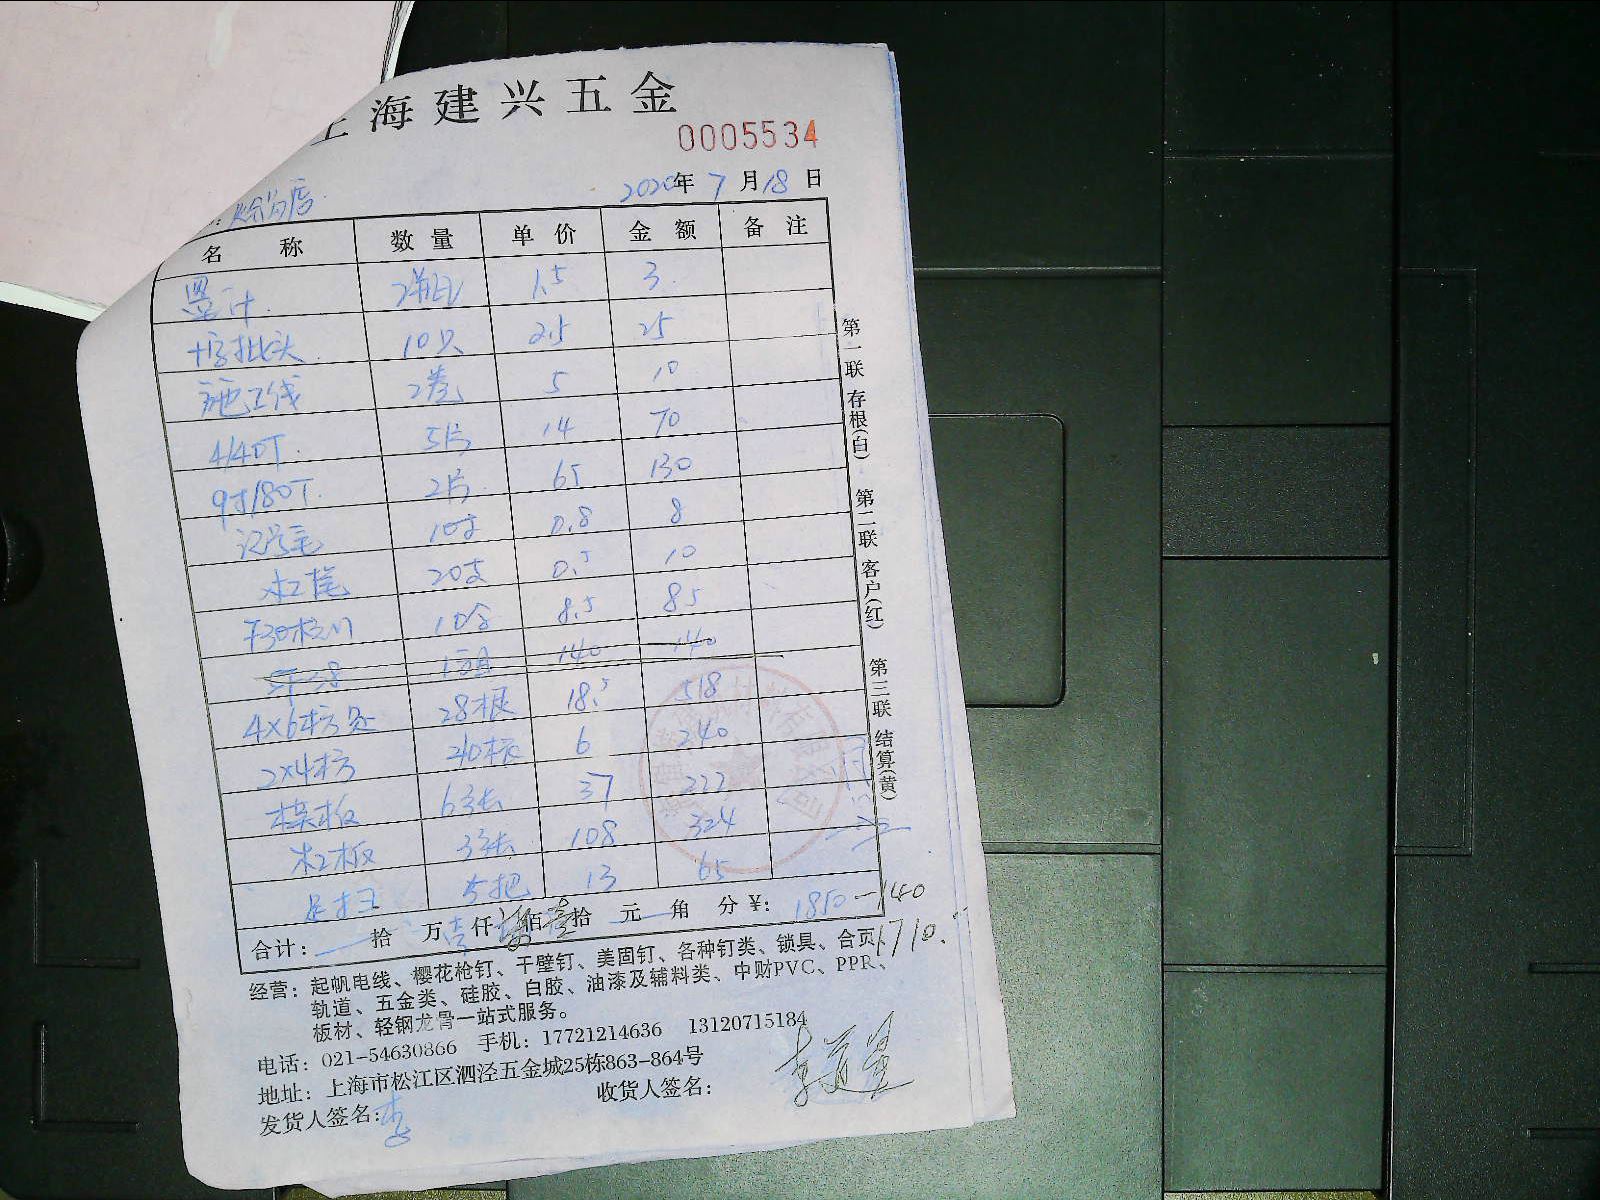 上海建兴五金
0005534
2020年7月18日
名称 数量 单价 金额 备注
墨汁 2瓶 1.5 3
十字批头 10只 2.5 25
施工线 2卷 5 10
4/40T 5片 14 70
9寸180T 2片 65 130
记号笔 10支 0.8 8
木工笔 20支 0.5 10
F30枪钉 10合 8.5 85
1组 140 140
4×6木方 28根 18.5 518
2×4木方 40根 6 240
模板 6张 37 222
木工板 3张 108 324
扫 5把 13 65
合计: 拾 万 壹仟 佰壹拾 元 角 分 ¥: 1850-140
1710.
第一联 存根(白) 第二联 客户(红) 第三联 结算(黄)
经营: 起帆电线、樱花枪钉、干壁钉、美固钉、各种钉类、锁具、合页、
轨道、五金类、硅胶、白胶、油漆及辅料类、中财PVC、PPR、
板材、轻钢龙骨一站式服务。
电话: 021-54630866 手机: 17721214636 13120715184
地址: 上海市松江区泗泾五金城25栋863-864号
发货人签名: 李 收货人签名: